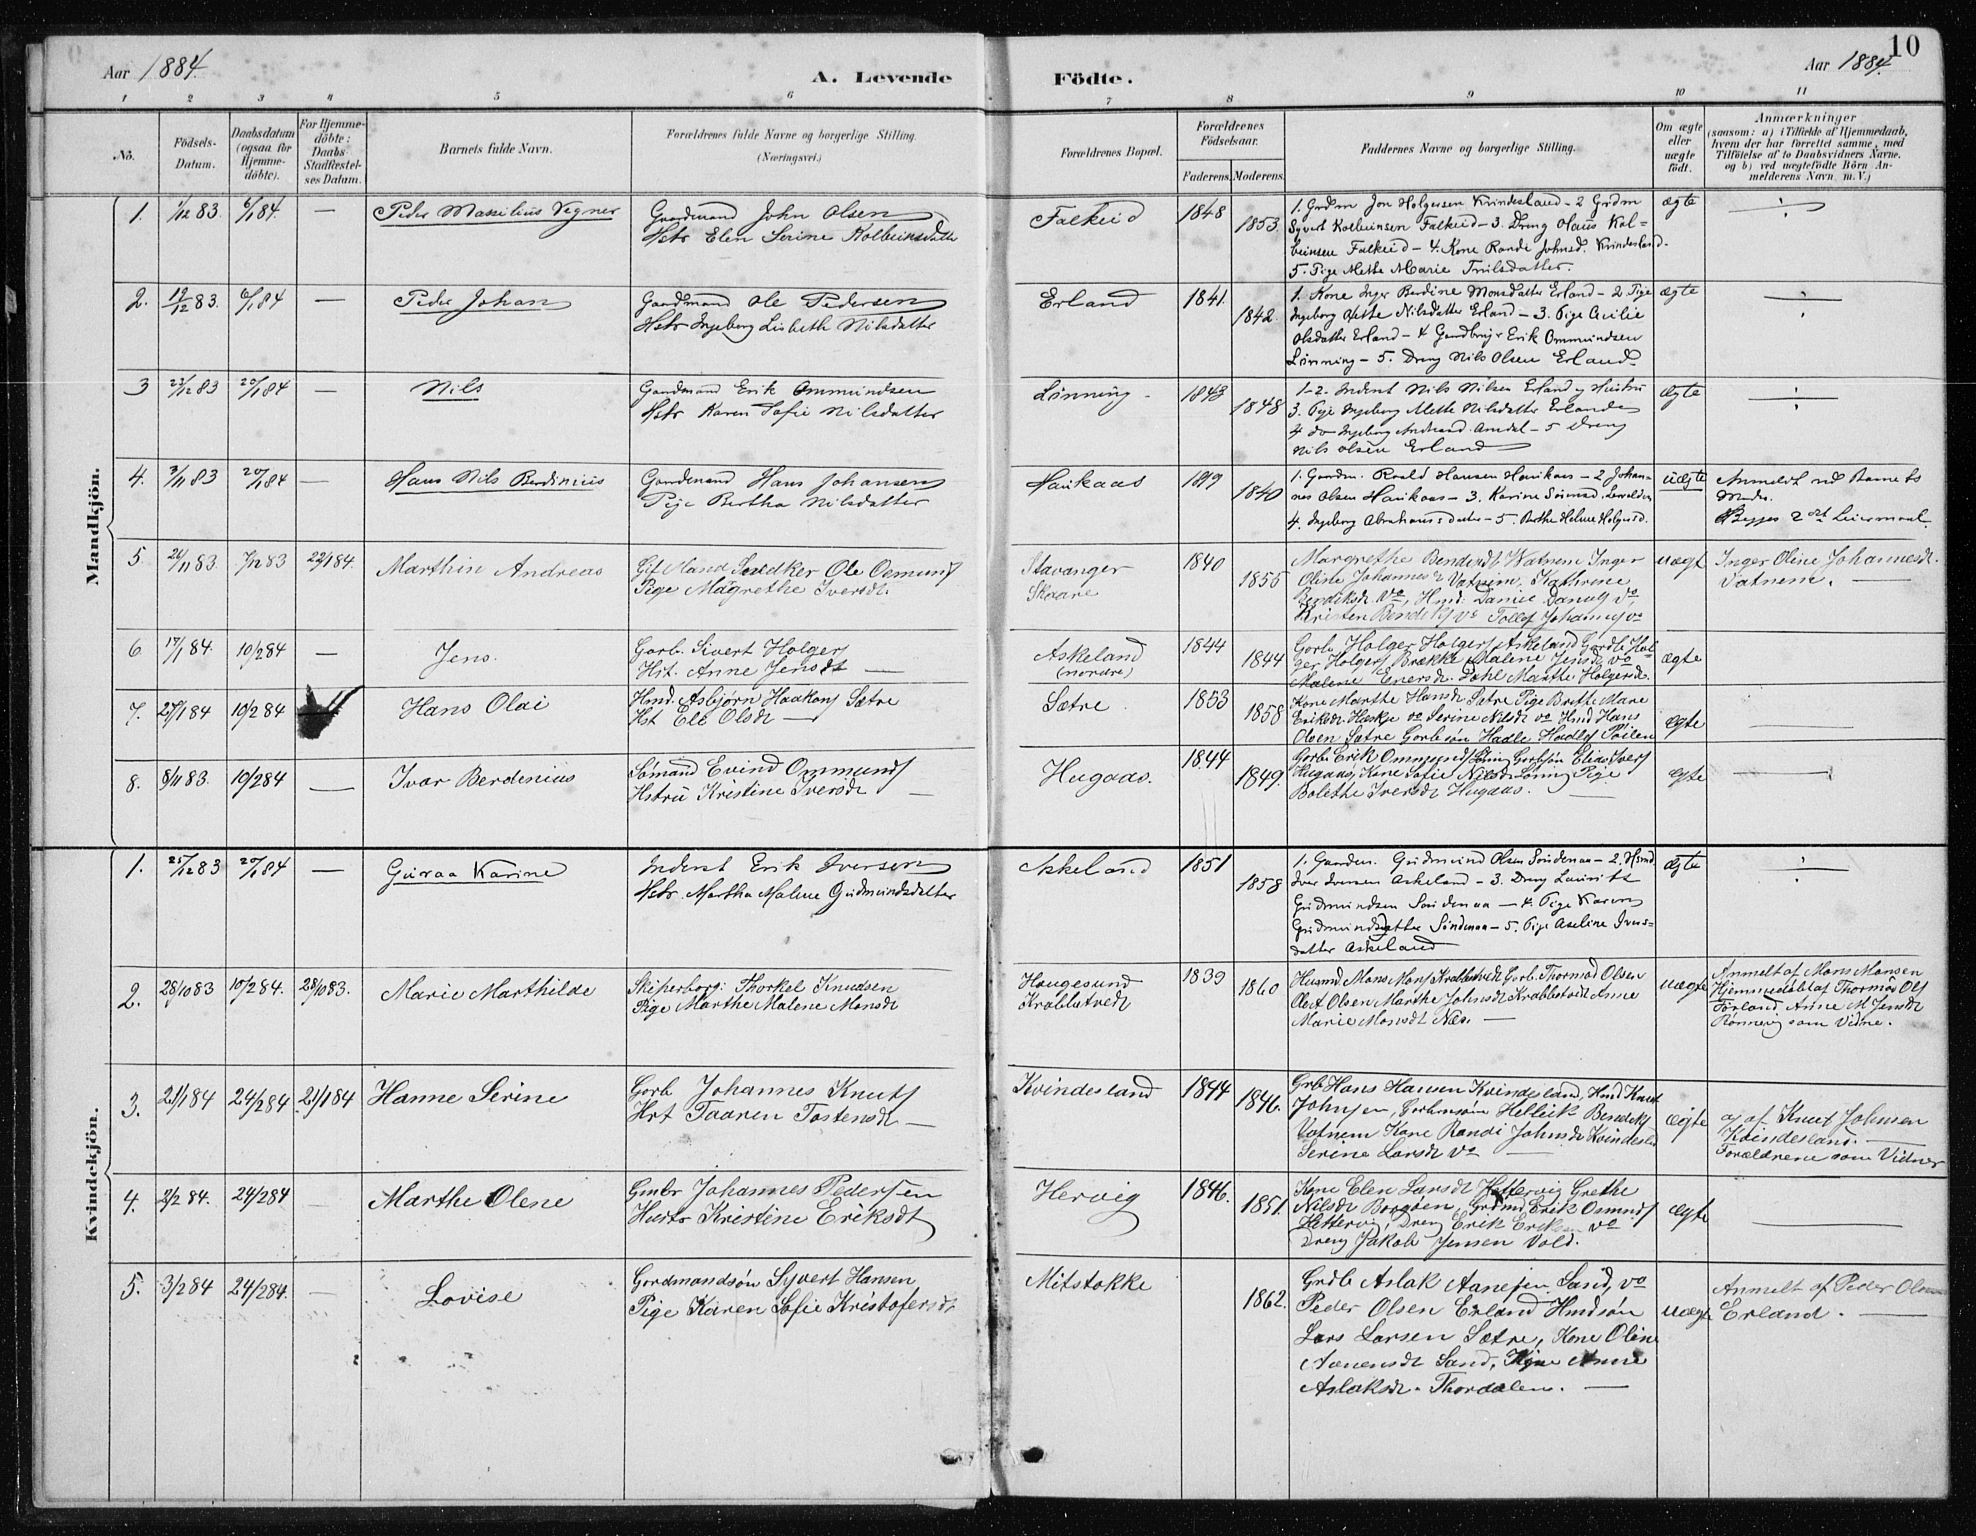 10
Aar 1884.
A. Levende Födte.
Aar 1884.
1 2 3 4 5 6 7 8 9 10 11
No.
Födsels-Datum.
Daabsdatum (ogsaa for Hjemme-döbte).
For Hjemme-döbte: Daabs Stadfæstel-ses Datum.
Barnets fulde Navn.
Forældrenes fulde Navne og borgerlige Stilling.
(Næringsvei.)
Forældrenes Bopæl.
Forældrenes Födselsaar.
Faderens. Moderens.
Faddernes Navne og borgerlige Stilling.
Om ægte eller uægte födt.
Anmærkninger
(saasom: a) i Tilfælde af Hjemmedaab,
hvem der har forrettet samme, med
Tilföielse af to Daabsvidners Navne,
og b) ved uægtefödte Börn An-
melderens Navn m. V.)
Mandkjön.
1. 1/12 83. 6/1 84. — Peder Massilius Vegner
Gaardmand John Olsen
Hstr Elen Serine Kolbeinsdatter
Falkeid 1848 1853.
1. Grdm Jon Holgersen Kvindesland – 2 Grdm
Syvert Kolbeinsen Falkeid – 3. Dreng Hans Kol-
beinsen Falkeid – 4. Kone Randi Johnsd. Kvindesland.
5. Pige Mette Marie
ægte
2. 19/12 83. 6/1 84 — Peder Johan
Gaardmand Ole Pedersen
Hstr Ingeborg Lisbeth Nilsdatter
Erland 1841. 1842.
1. Kone Inger Berdine Monsdatter Erland – 2. Pige
Ingeborg Mette Nilsdatter Erland – 3. Pige Cecilie
Olsdatter Erland – 4 Erik Ommundsen
Lönning – 5. Dreng Nils Olsen Erland
ægte
3 23/12 83 20/1 84 — Nils
Gaardmand Erik Ommundsen
Hstr Karen Sofie Nilsdatter
Lönning – 1843 1848
1-2. Inderst Nils Nilsen Erland og Hustru
3. Pige Ingeborg Mette Nilsdatter Erland
4 do Ingeborg – 5 Dreng
Nils Olsen Erland
ægte
4. 3/11 83 20/1 84 — Hans Nils Berdinius
Gaardmand Hans Johansen
Pige Bertha Nilsdatter
Haukaas 1819 1840
1. Gaardm. Roald Hansen Haukaas – 2 Johan-
nes Olsen Haukaas – 3. Karine
4. Ingeborg Abrahamsdatter – 5. Berthe Helene Holgersd.
uægte
Anmeldt ved Barnets
Moder.
Begges 2det Leiermaal.
5. 26/11 83. 7/12 83 22/1 84. Marthin Andreas
Ole Osmunds
Pige Magrethe Iversdt.
Stavanger
Skaare
1840 1855
Margrethe Bendixdt Watnem Inger
Oline Johannesd Vatnem, Kathrine
Bendiksdt do, Hmd: Daniel do,
Kristen do Tollef Johannes do
uægt
Inger Oline Johannesdt.
Vatnem. —
6 17/1 84. 10/2 84 — Jens.
Gorb. Sivert Holgers
Hst. Anne Jensdt —
Askeland
(nordre)
1844 1844
Gorb. Holger Holgers Askeland Gordb Hol-
ger Holgers Brække Malene Jensdt do
Malene Enersdt. Dahl Marthe Holgerdt.
ægte
7. 27/1 84 10/2 84 Hans Olai
Hmd. Asbjörn Haakons Sætre
Hst Ele Olsdt —
Sætre. 1853 1858
Kone Marthe Hansdt Sætre Pige Brithe Marie
Eriksdt do Serine Nilsdt do Hmd Hans
Olsen Sætre Gorbsön
ægte
8. 8/11 83. 10/2 84 — Ivar Berdinius
Sömand Evind Ommunds
Hstru Kristine Iversdt —
Hugaas. 1844 1849.
Gorb. Erik Ommunds Lönn Gorbsön Elias Ivers
Hugaas, Kone Sofie Nilsd Lönn Pige
Bolethe Iversdt Hugaas. —
ægte
Kvindekjön.
1. 25/12 83 20/1 84 — Guraa Karine
Inderst Erik Iversen
Hstr. Martha Malene Gudmundsdatter
Askeland 1851 1858
1. Gaardm. Gudmund Olsen Söndenaa – 2. Hsmd
Iver Iversen Askeland – 3. Dreng Laurits
Gudmundsen Söndenaa – 4. Pige Karen
Gudmundsdatter Söndenaa – 5. Pige Aseline Ivers-
datter Askeland
ægte
2. 28/10 83 10/2 84. 28/10 83. Marie Marthilde
Skipperborg: Thorkel Knudsen
Pige Marthe Malene Monsdt
Haugesund
Krabbetvedt
1839 1860
Husmd Mons Mons Krabbetvedt Gorb. Thormod Olsen
Olsen Marthe Johnsdt Krabbetvedt Anne
Marie Monsdt Næs. —
uægte
Anmelt af Mons Monsen
Hjemmedöbt af Thormod Ols
Förland Anne M Jensdt
Rönnevig som Vidne.
3. 21/1 84 24/2 84 21/1 84 Hanne Serine
Gorb Johannes Knuts
Hst Taaren Tostensdt —
Kvindesland 1844 1846.
Grb Hans Hansen Kvindesland, Hmd Knut
Johnsen, Gorbmsön Helleik Bendiks
Vatnem Kone Randi Johnsdt Kvindesld
Serine Larsdt do —
ægte
af Knut Johnsen
Kvindesland. —
Forældrene som Vidner
4. 2/2 84. 24/2 84 — Marthe Olene
Gmbr Johannes Pedersen
Hustr Kristine Eriksdt
Hervig 1846. 1851.
Kone Elen Larsdt Hettervig Grethe
Nilsdt Borgöen, Grdmd Erik Osmunds
Hettervig, Dreng Erik Eriksen do
Dreng Jakob Jensen Vold.
ægte
5. 3/2 84 24/2 84. — Lovise
Gordmandsön Syvert Hansen
Pige Karen Sofie Kristofersdt
Mitstokke 1862.
Grdb Aslak Aanesen Sand, do
Peder Olsen Erland Hmdsön
Lars Larsen Sætre, Kone Oline
Aanensdt Sand, Kone Anne
Aslaksdt. Thordalen. —
uægte
Anmelt af Peder Olsen
Erland. —